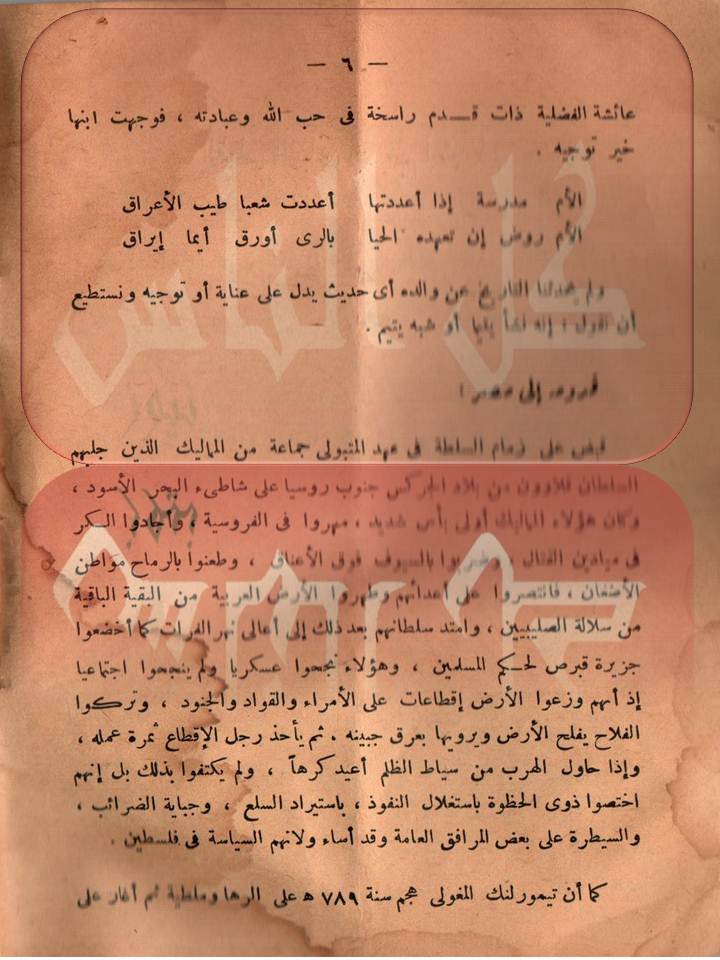 — ٦ —
عائشة الفضلية ذات قـــدم راسخة فى حب الله وعبادته ، فوجهت ابنها
خير توجيه .
الأم مدرسة إذا أعددتها أعددت شعبا طيب الأعراق
الأم روض إن تعهده الحيا بالرى أورق أيما إيراق
ولم يحدثنا التاريخ عن والده أى حديث يدل على عناية أو توجيه ونستطيع
أن نقول : إنه نشأ يتيما أو شبه يتيم .
إلى مصر :
قبض على زمام السلطة فى عهد المتبولى جماعة من المماليك الذين جلبهم
السلطان قلاوون من بلاد الجركس جنوب روسيا على شاطىء البحر الأسود ،
وكان هؤلاء المماليك أولى بأس شديد ، مهروا فى الفروسية ، وأجادوا الكر
فى ميادين القتال ، وضربوا بالسيوف فوق الأعناق ، وطعنوا بالرماح مواطن
الأضغان ، فانتصروا على أعدائهم وطهروا الأرض العربية من البقية الباقية
من سلالة الصليبيين ، وامتد سلطانهم بعد ذلك إلى أعالى نهر الفرات كما أخضعوا
جزيرة قبرص لحـكم المسلمين ، وهؤلاء نجحوا عسكريا ولم ينجحوا اجتماعيا
إذ أنهم وزعوا الأرض إقطاعات على الأمراء والقواد والجنود ، وتركوا
الفلاح يفلح الأرض ويرويها بعرق جبينه . ثم يأخذ رجل الإقطاع ثمرة عمله ،
وإذا حاول الهرب من سياط الظلم أعيد كرهاً ، ولم يكتفوا بذلك بل إنهم
اختصوا ذوى الحظوة باستغلال النفوذ ، باستيراد السلع ، وجباية الضرائب ،
والسيطرة على بعض المرافق العامة وقد أساء ولاتهم السياسة فى فلسطين .
كما أن تيمورلنك المغولى هجم سنة ٧٨٩ ه على الرها وملطية ثم أغار على
كل الناس